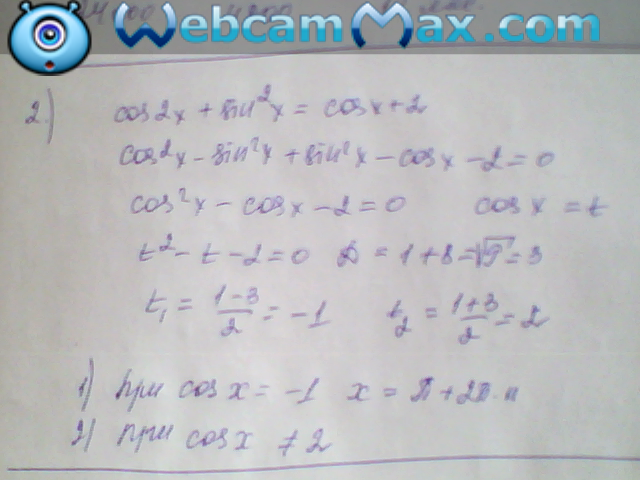 WebcamMax.com
2.) cos2x + sin²x = cosx + 2
cos²x - sin²x + sin²x - cosx - 2 = 0
cos²x - cosx - 2 = 0 cosx = t
t² - t - 2 = 0 D = 1 + 8 = √9 = 3
t₁ = (1-3)/2 = -1 t₂ = (1+3)/2 = 2
1) при cosx = -1 x = π + 2π·n
2) при cosx ≠ 2